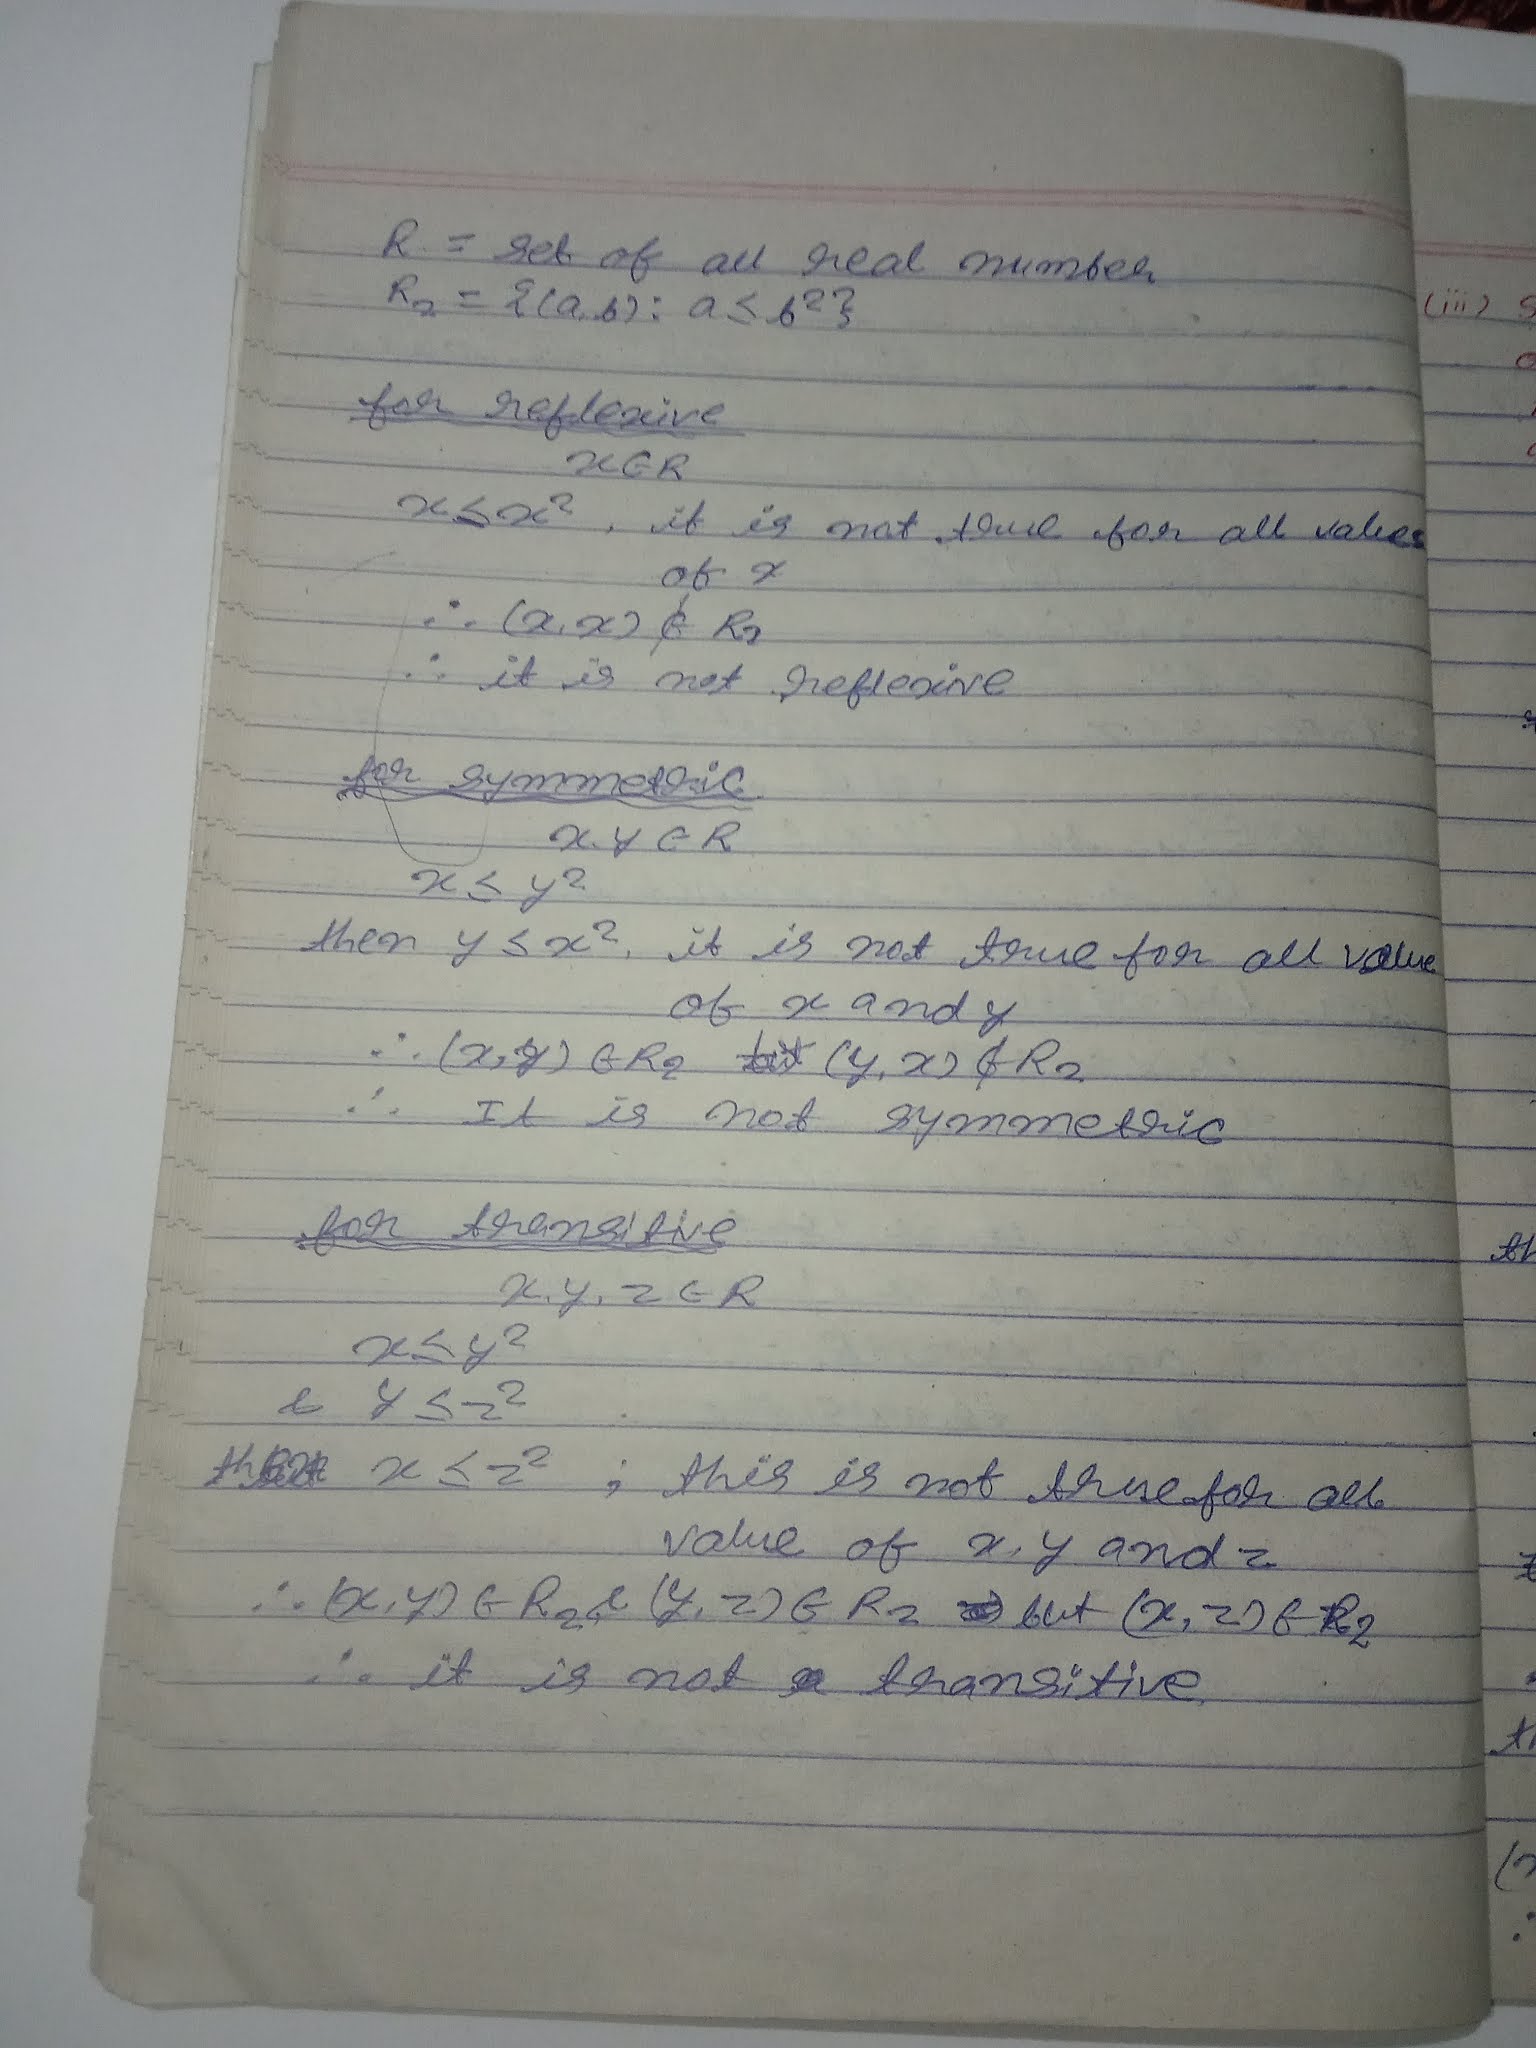 R = set of all real number
R₂ = {(a,b): a ≤ b²}
for reflexive
x∈R
x≤x², it is not true for all values
of x
∴ (x,x) ∉ R₂
∴ it is not reflexive
for symmetric
x,y ∈ R
x ≤ y²
then y ≤ x², it is not true for all value
of x and y
∴ (x,y) ∈ R₂ but (y,x) ∉ R₂
∴ It is not symmetric
for transitive
x,y,z ∈ R
x ≤ y²
& y ≤ z²
x ≤ z² ; this is not true for all
value of x,y and z
∴ (x,y) ∈ R₂ & (y,z) ∈ R₂ but (x,z) ∈ R₂
∴ it is not transitive
(iii)
th